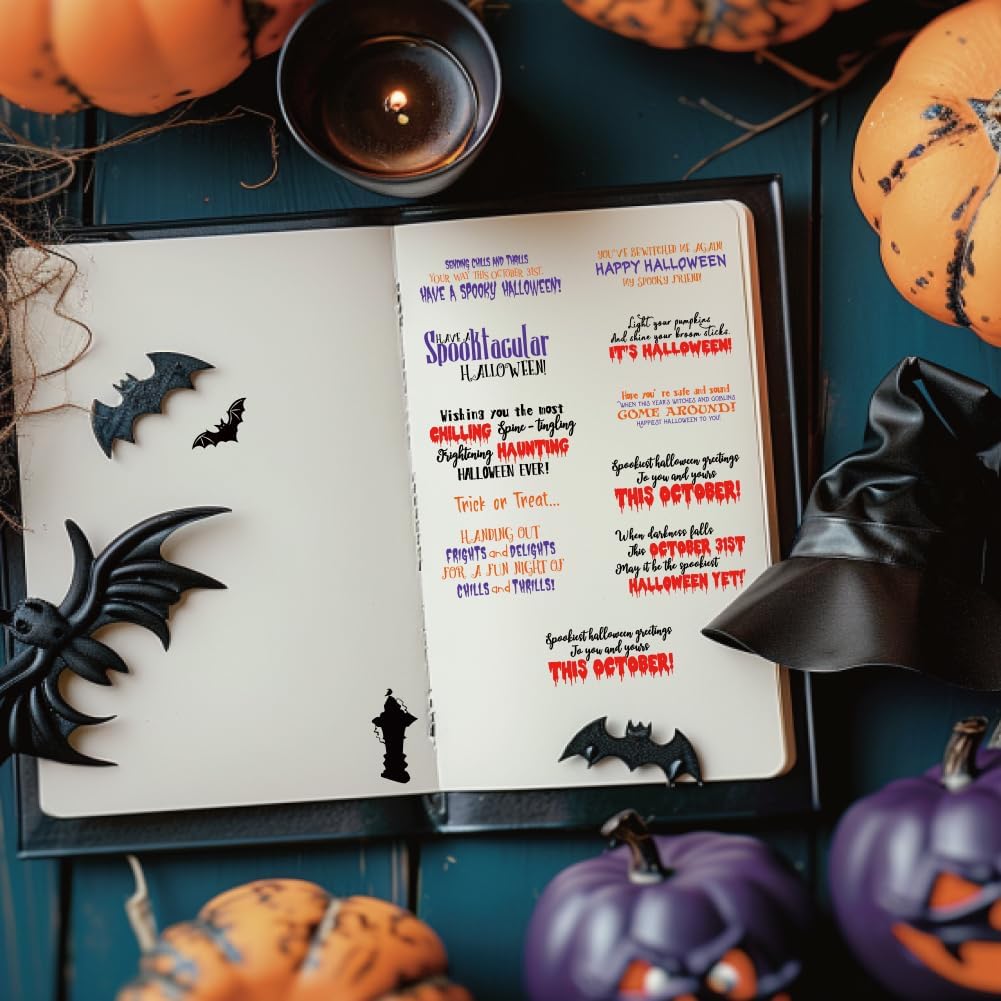 SENDING CHILLS AND THRILLS
YOUR WAY THIS OCTOBER 31ST.
HAVE A SPOOKY HALLOWEEN!
HAVE A
Spooktacular
HALLOWEEN!
Wishing you the most
CHILLING Spine-tingling
Frightening HAUNTING
HALLOWEEN EVER!
Trick or Treat...
HANDING OUT
FRIGHTS and DELIGHTS
FOR A FUN NIGHT OF
CHILLS and THRILLS!
YOU'VE BEWITCHED ME AGAIN!
HAPPY HALLOWEEN
MY SPOOKY FRIEND!
Light your pumpkins
And shine your broom sticks.
IT'S HALLOWEEN!
Hope you're safe and sound
WHEN THIS YEAR'S WITCHES AND GOBLINS
COME AROUND!
HAPPIEST HALLOWEEN TO YOU!
Spookiest halloween greetings
To you and yours
THIS OCTOBER!
When darkness falls
This OCTOBER 31ST
May it be the spookiest
HALLOWEEN YET!
Spookiest halloween greetings
To you and yours
THIS OCTOBER!